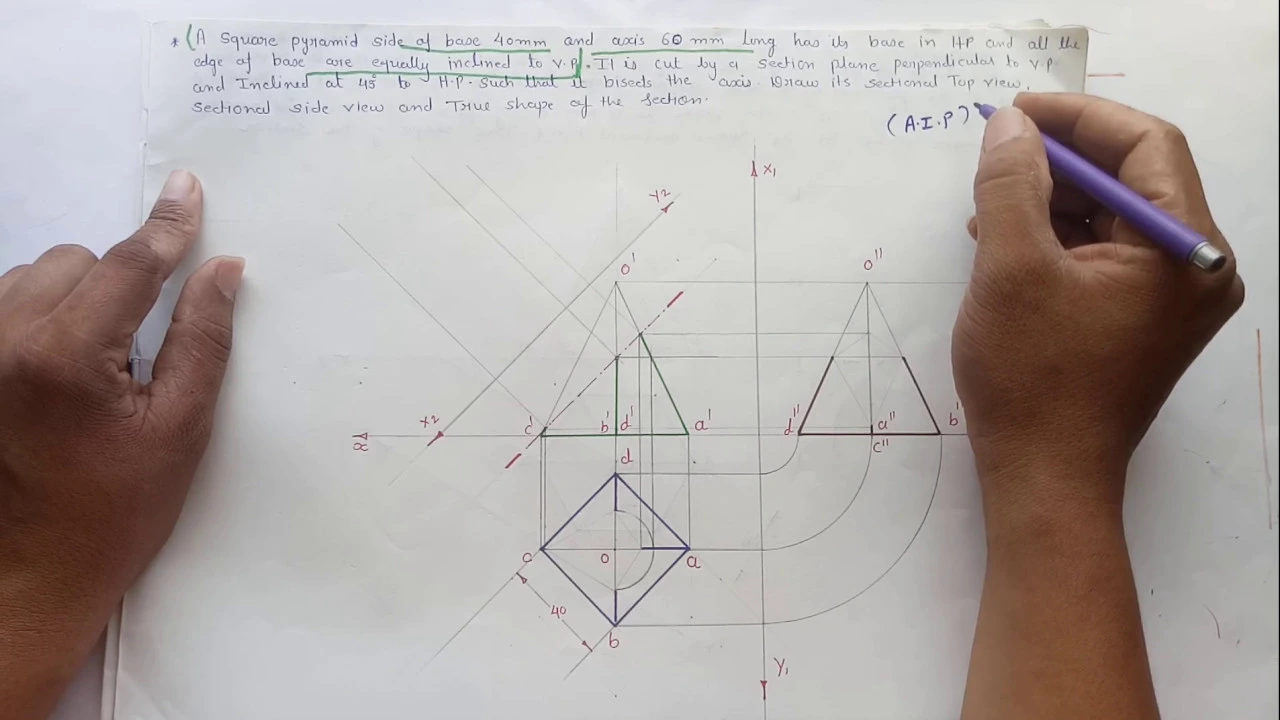 * (A square pyramid side of base 40mm and axis 60 mm long has its base in HP and all the
edge of base are equally inclined to V.P). It is cut by a section plane perpendicular to V.P.
and Inclined at 45° to H.P. Such that it bisects the axis. Draw its sectional Top view,
sectional side view and True shape of the section.
(A.I.P)
X1
Y2
o'
o"
X2
c'
b'
d'
a'
d"
a"
b'
x
c"
d
c
o
a
40
b
Y1